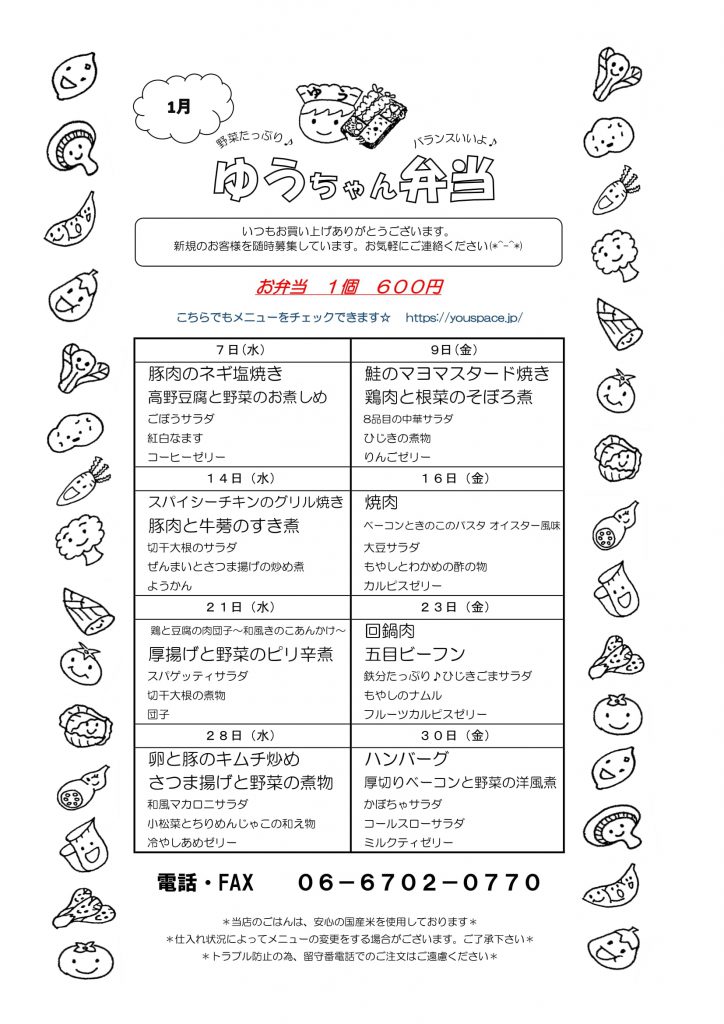 1月
ゆう
野菜たっぷり♪
バランスいいよ♪
ゆうちゃん弁当
いつもお買い上げありがとうございます。
新規のお客様を随時募集しています。お気軽にご連絡ください(*^-^*)
お弁当 1個 600円
こちらでもメニューをチェックできます☆ https://youspace.jp/
7日(水)
豚肉のネギ塩焼き
高野豆腐と野菜のお煮しめ
ごぼうサラダ
紅白なます
コーヒーゼリー
9日(金)
鮭のマヨマスタード焼き
鶏肉と根菜のそぼろ煮
8品目の中華サラダ
ひじきの煮物
りんごゼリー
14日(水)
スパイシーチキンのグリル焼き
豚肉と牛蒡のすき煮
切干大根のサラダ
ぜんまいとさつま揚げの炒め煮
ようかん
16日(金)
焼肉
ベーコンときのこのパスタ オイスター風味
大豆サラダ
もやしとわかめの酢の物
カルピスゼリー
21日(水)
鶏と豆腐の肉団子~和風きのこあんかけ~
厚揚げと野菜のピリ辛煮
スパゲッティサラダ
切干大根の煮物
団子
23日(金)
回鍋肉
五目ビーフン
鉄分たっぷり♪ひじきごまサラダ
もやしのナムル
フルーツカルピスゼリー
28日(水)
卵と豚のキムチ炒め
さつま揚げと野菜の煮物
和風マカロニサラダ
小松菜とちりめんじゃこの和え物
冷やしあめゼリー
30日(金)
ハンバーグ
厚切りベーコンと野菜の洋風煮
かぼちゃサラダ
コールスローサラダ
ミルクティゼリー
電話・FAX 06-6702-0770
*当店のごはんは、安心の国産米を使用しております*
*仕入れ状況によってメニューの変更をする場合がございます。ご了承下さい*
*トラブル防止の為、留守番電話でのご注文はご遠慮ください*